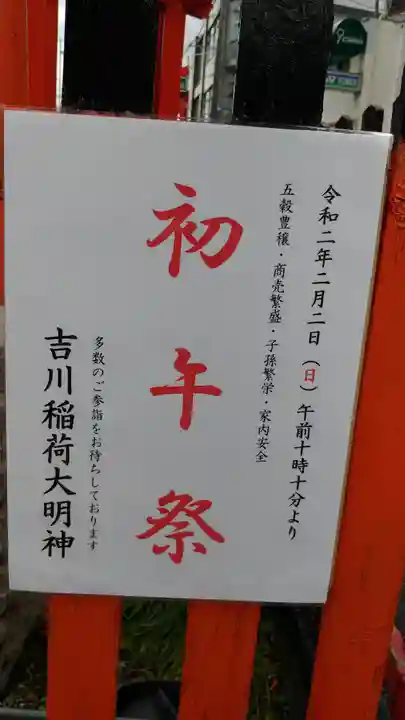 令和二年二月二日（日）午前十時十分より
五穀豊穣・商売繁盛・子孫繁栄・家内安全
初午祭
多数のご参詣をお待ちしております
吉川稲荷大明神